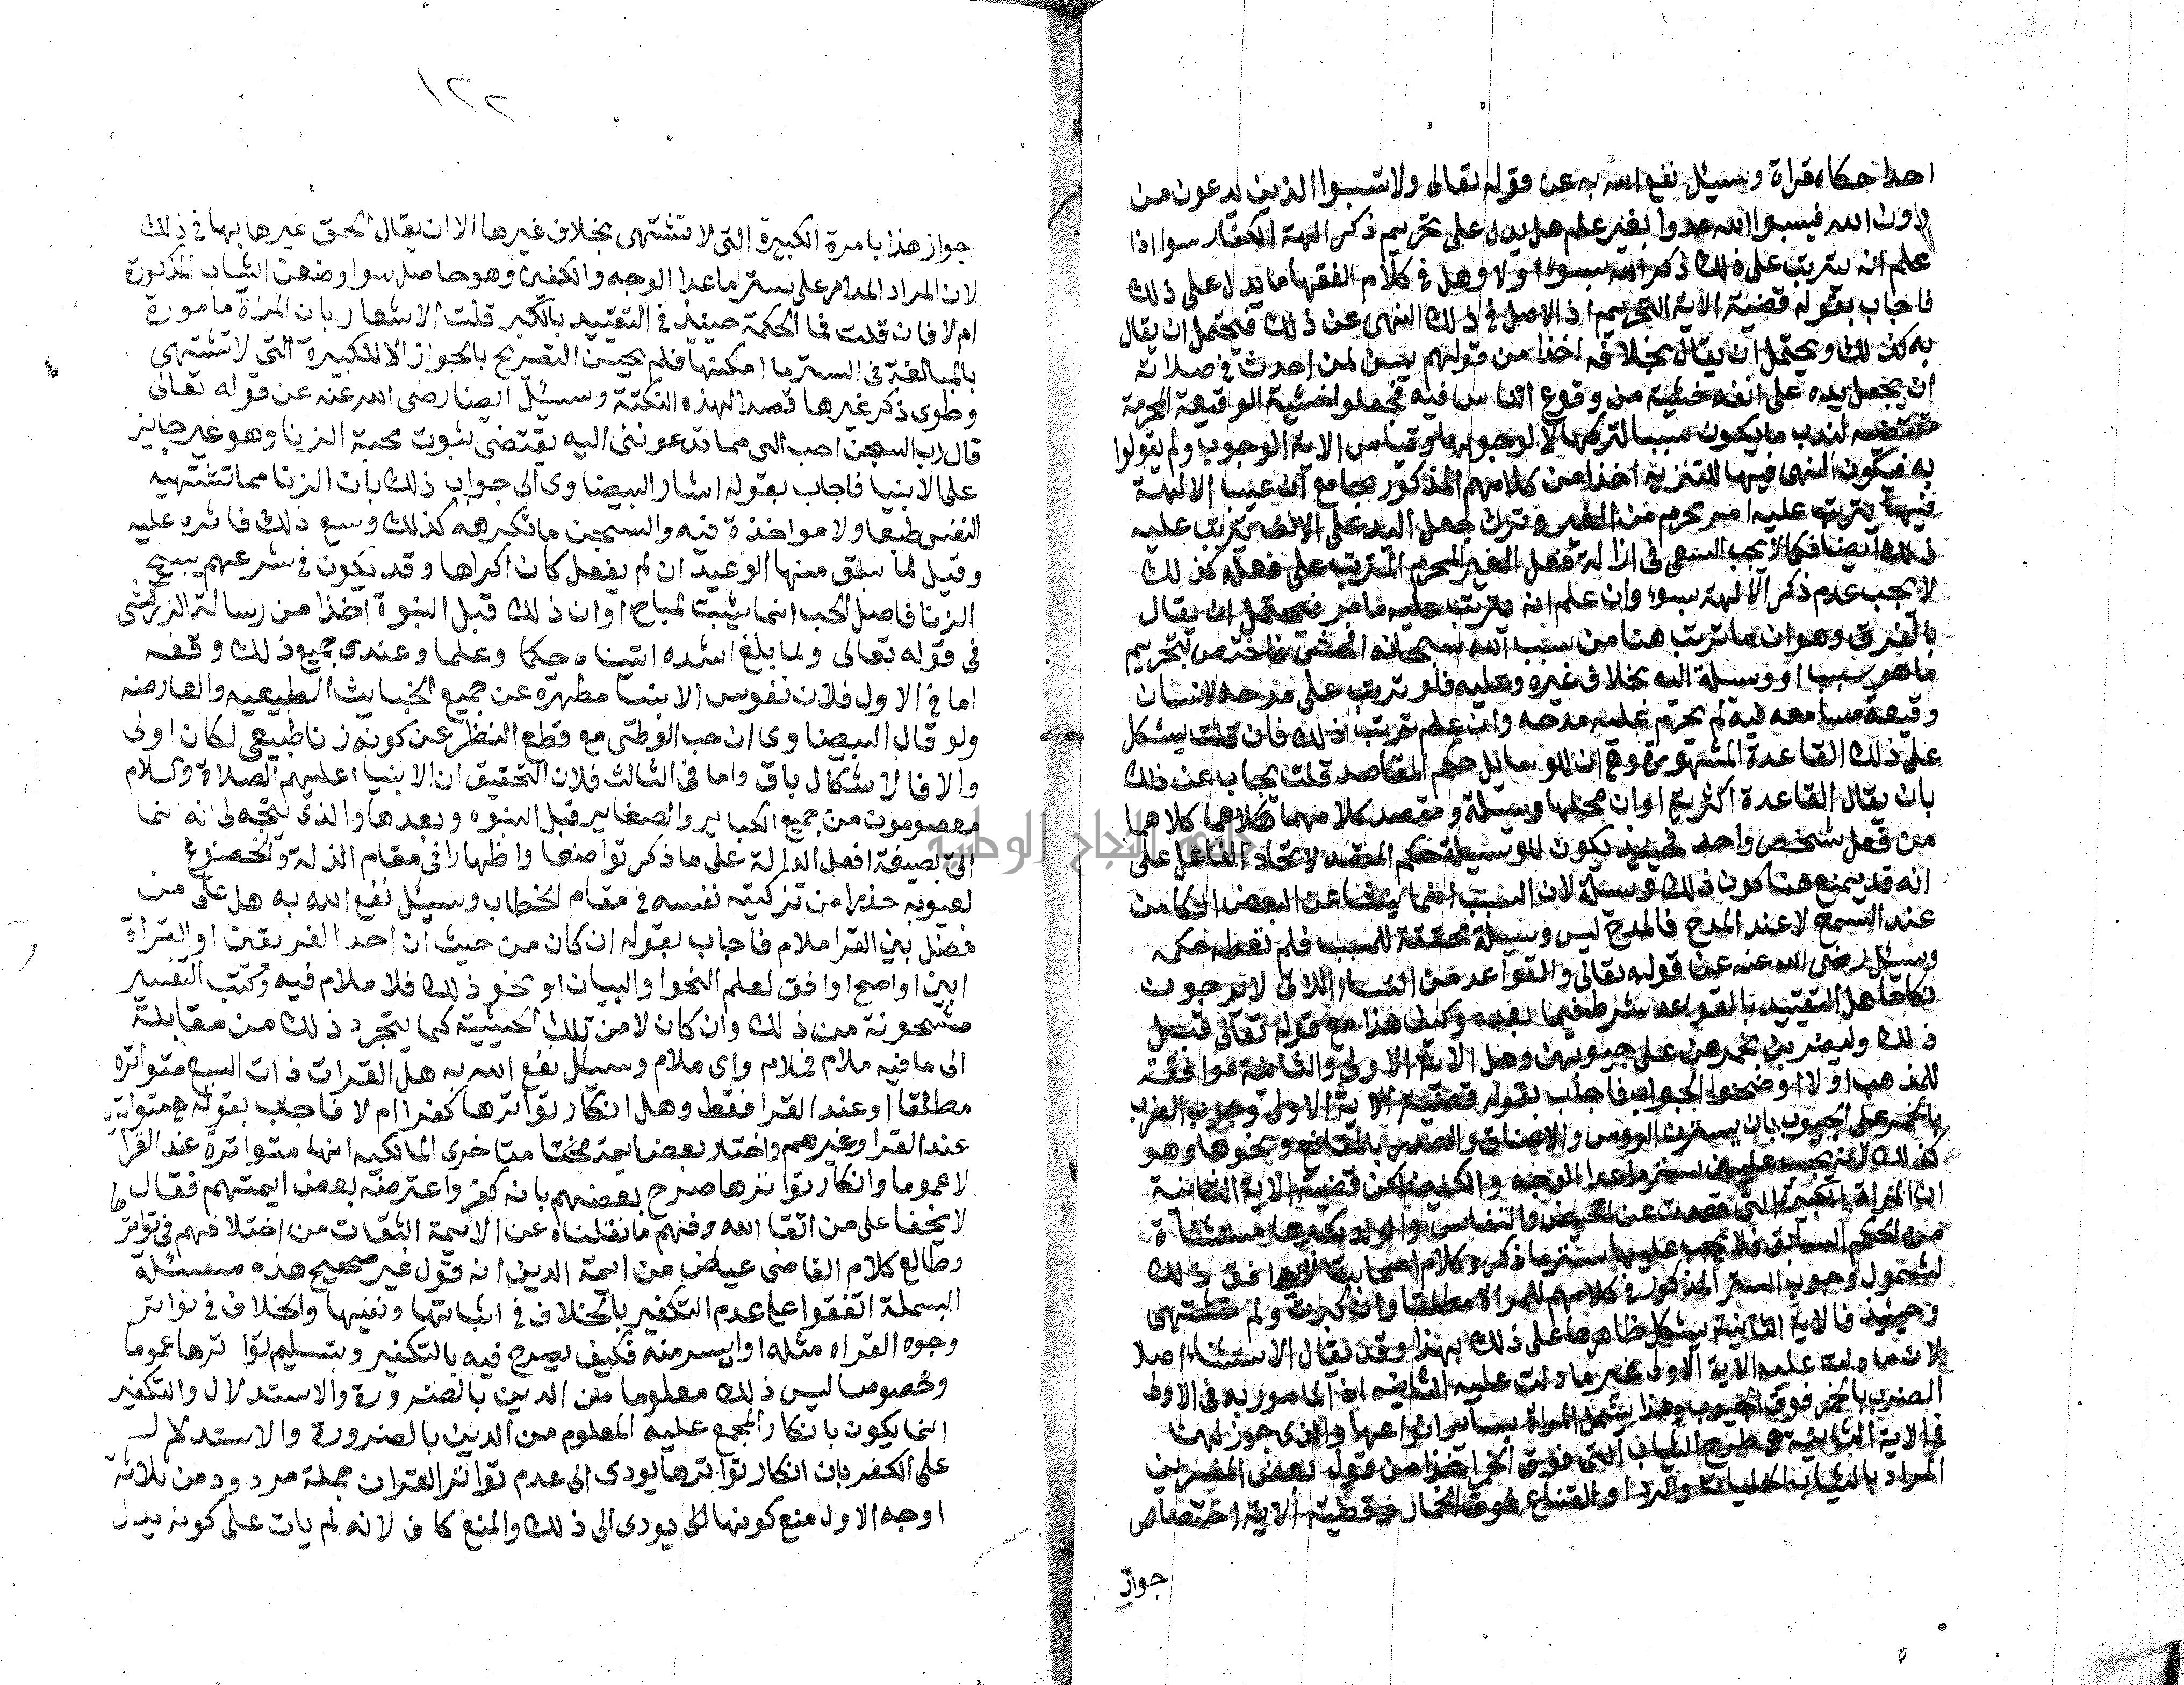 احدا حكاه قراة وسئل نفع الله به عن قوله تعالى ولا تسبوا الذين يدعون من
دون الله فيسبوا الله عدوا بغير علم هل يدل على تحريم ذكر الهة الكفار سوا اذا
علم انه يترتب على ذلك ذكر الله بسوء اولا وهل في كلام الفقها ما يدل على ذلك
فاجاب بقوله قضية الاية التحريم اذ الاصل في ذلك النهى عن ذلك فيحتمل ان يقال
به كذلك ويحتمل ان يقال بخلافه اخذا من قولهم يسن لمن احدث في صلاته
ان يجعل يده على انفه خشية من وقوع الناس فيه فجعلوا خشية الوقيعة المحرمة
مقتضيه لندب ما يكون سببا لتركها لا لوجوبها وقياس الاية الوجوب ولم يقولوا
به فيكون النهى فيها للتنزيه اخذا من كلامهم المذكور بجامع ان عيب الالهة
فيها يترتب عليه امر يحرم من الغير وترك جعل اليد على الانف يترتب عليه
ذلك ايضا فكما لا يجب السعى في ازالة فعل الغير المحرم المترتب على فعله كذلك
لا يجب عدم ذكر الالهة بسوء وان علم انه يترتب عليه ما مر فيحتمل ان يقال
بالفرق وهو ان ما ترتب هنا من سب الله سبحانه افحش فاختص بتحريم
ما هو سببا او وسيلة اليه بخلاف غيره وعليه فلو ترتب على مدحه لانسان
وقيعة سامعه فيه لم يحرم عليه مدحه وان علم ترتب ذلك فان قلت يشكل
على ذلك القاعدة المشهورة وهي ان للوسايل حكم المقاصد قلت يجاب عن ذلك
بان يقال القاعدة اكثرية او ان محلها وسيلة ومقصد كلا منهما كلاهما
من فعل شخص واحد فحينيذ يكون للوسيلة حكم المقصد لاتحاد الفاعل على
انه قد يمنع هنا كون ذلك وسيلة لان السبب انما ينشا عن البغض الكامن
عند السمع لا عند المدح فالمدح ليس وسيلة محققة للسبب فلم نعطه حكمه
وسئل رضى الله عنه عن قوله تعالى والقواعد من النساء اللاتى لا يرجون
نكاحا هل التقييد بالقواعد شرط فيما بعده وكيف هذا مع قوله تعالى قبل
ذلك وليضربن بخمرهن على جيوبهن وهل الاية الاولى والثانية موافقة
للمذهب اولا اوضحوا الجواب فاجاب بقوله قضية الاية الاولى وجوب الضرب
بالخمر على الجيوب بان يسترن الروس والاعناق والصدر بالمقانع ونحوها وهو
كذلك لانه يجب عليهن ستر ما عدا الوجه والكفين لكن قضية الاية الثانية
ان المراة الكبيرة التى قعدت عن الحيض والنفاس والولد لكبرها مستثناة
من الحكم السابق فلا يجب عليها ستر ما ذكر وكلام اصحابنا لا يوافق ذلك
لشمول وجوب الستر المذكور في كلامهم للمراة مطلقا وان كبرت ولم تشتهى
وحينيذ فالاية الثانية يشكل ظاهرها على ذلك بهذا وقد يقال لا استثناء اصلا
لان ما دلت عليه الاية الاولى غير ما دلت عليه الثانية اذ المامور به في الاولى
الضرب بالخمر فوق الجيوب وهذا يشمل المراة بساير انواعها والذى جوز لهن
في الاية الثانية هو طرح الثياب التى فوق الخمر اخذا من قول بعض المفسرين
المراد بالثياب الجلباب والردا والقناع فوق الخمار وقضية الاية اختصاص
جواز
١٢٢
جواز هذا بامرة الكبيرة التى لا تشتهى بخلاف غيرها الا ان يقال الحق غيرها بها في ذلك
لان المراد المدار على ستر ما عدا الوجه والكفين وهو حاصل سوا وضعت الثياب المذكورة
ام لا فان قلت فما الحكمة حينيذ في التقييد بالكبر قلت الاشعار بان المرة مامورة
بالمبالغة في الستر ما امكنها فلم يحسن التصريح بالجواز الا للكبيرة التى لا تشتهى
وطوى ذكر غيرها قصدا لهذه النكتة وسئل ايضا رضى الله عنه عن قوله تعالى
قال رب السجن احب الى مما تدعوننى اليه يقتضى ثبوت محبة الزنا وهو غير جايز
على الانبيا فاجاب بقوله اشار البيضاوى الى جواب ذلك بان الزنا مما تشتهيه
النفس طبعا ولا مواخذة فيه والسجن ما تكرهه كذلك ومع ذلك فاثره عليه
وقيل لما سبق منها الوعيد ان لم يفعل كان اكراها وقد يكون في شرعهم يبيح
الزنا فاصل الحب انما يثبت لمباح او ان ذلك قبل النبوة اخذا من رسالة الزركشى
في قوله تعالى ولما بلغ اشده اتيناه حكما وعلما وعندى جميع ذلك وقفه
اما في الاول فلان نفوس الانبيا مطهرة عن جميع الخبايث الطبيعيه والعارضه
ولو قال البيضاوى ان حب الوطى مع قطع النظر عن كونه زنا طبيعى لكان اولى
والا فالاشكال باق واما في الثالث فلان التحقيق ان الانبياء عليهم الصلاة والسلام
معصومون من جميع الكباير والصغاير قبل النبوه وبعدها والذى يتجه لى انه انما
اتى بصيغة افعل الدالة على ما ذكر تواضعا واظهارا في مقام الذلة والخضوع
لعبوديته حذرا من تزكيته نفسه في مقام الخطاب وسئل نفع الله به هل على من
فضل بين القرا ملام فاجاب بقوله ان كان من حيث ان احد الفريقين او القراة
ابين او اصح اوافق لعلم النحو او البيان او نحو ذلك فلا ملام فيه وكتب التفسير
مشحونة من ذلك وان كان لا من تلك الحيثية كما يتجرد ذلك من مقابلة
الى ما فيه ملام فملام واى ملام وسئل نفع الله به هل القرات ذات السبع متواتره
مطلقا او عند القرا فقط وهل انكار تواترها كفرا ام لا فاجاب بقوله هي متواتره
عند القرا وغيرهم واختار بعض ايمة متاخرى المالكيه انها متواترة عند القرا
لا عموما وانكار تواترها صرح بعضهم بانه كفر واعترضه بعض ايمتهم فقال
لا يخفا على من اتقا الله وفهم ما نقلناه عن الايمة الثقات من اختلافهم في تواترها
وطالع كلام القاضى عياض من ايمة الدين انه قول غير صحيح هذه مسئلة
البسملة اتفقوا على عدم التكفير بالخلاف في اثباتها ونفيها والخلاف في تواتر
وجوه القراه مثله او ايسر منه فكيف يصرح فيه بالتكفير وبتسليم تواترها عموما
وخصوصا ليس ذلك معلوما من الدين بالضرورة والاستدلال والتكفير
انما يكون بانكار المجمع عليه المعلوم من الدين بالضرورة والاستدلال
على الكفر بان انكار تواترها يودى الى عدم تواتر القران جملة مردود من ثلاثة
اوجه الاول منع كونها الى يودى الى ذلك والمنع كاف لانه لم يات على كونه يدل